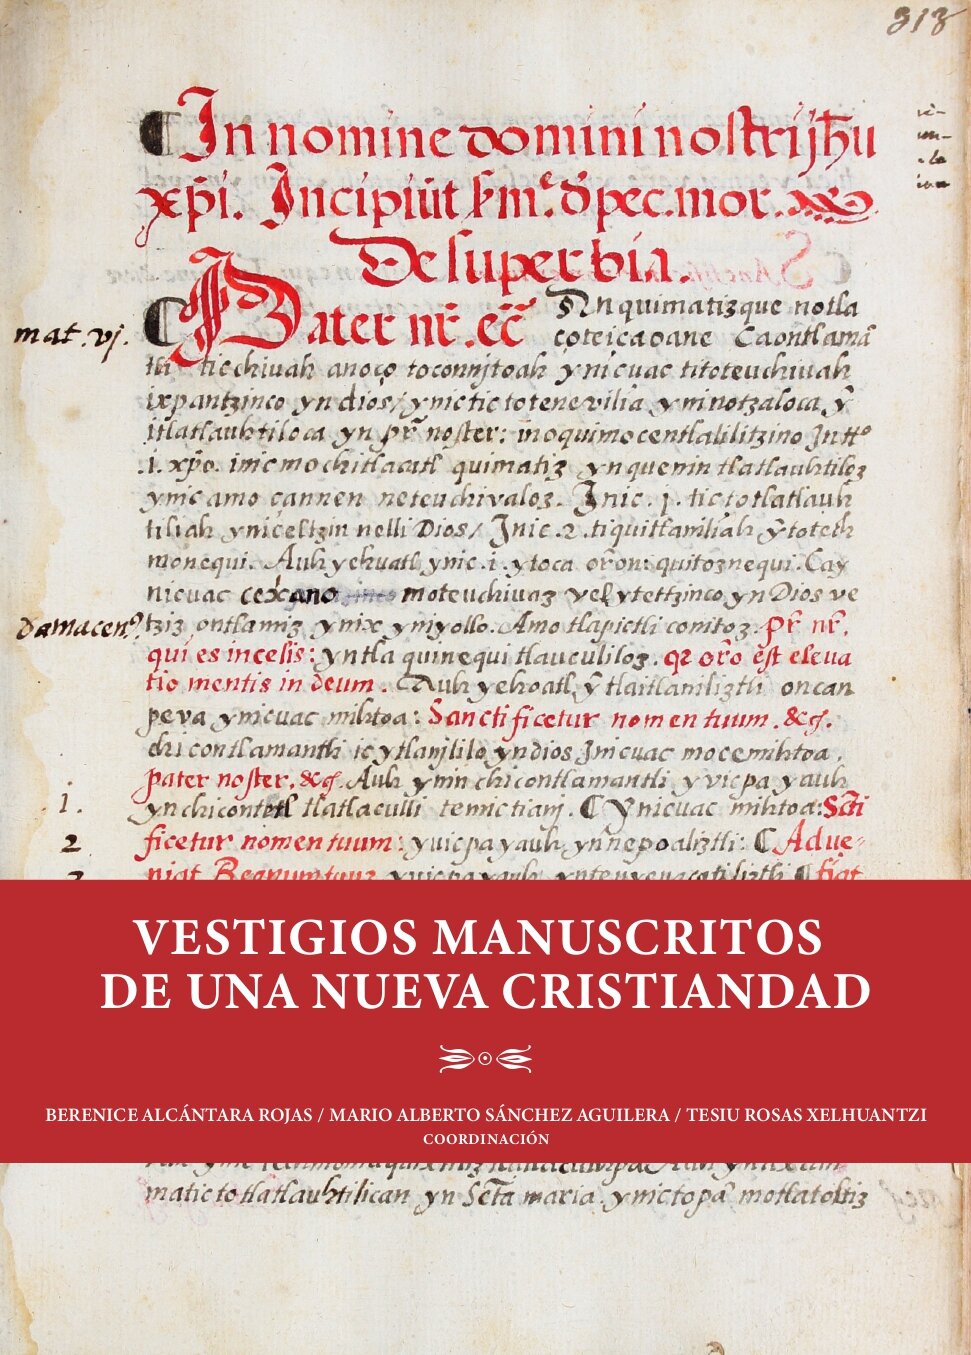 313
In nomine domini nostri jhu
xpi. Incipiut sm.e d pec. mor.
De superbia.
mat. vj.
Pater nr. ec
yn quimatizque notla
çoteicaoane Caontlama
tli ticchiuah anoço toconnjtoah ynicuac titoteuchiuah
ixpantzinco yn dios/ ynic tictotenevilia yninotzaloca y
itlatlauhtiloca yn pr noster: inoquimocentlalilitzino Jn tto
.i. xpo. inic mochitlacatl quimatiz ynquenin tlatlauhtiloz
ynic amo cannen neteuchivaloz. Jnic .j. tictotlatlauh
tiliah yniceltzin nelli Dios/ Jnic .2. tiquitlaniliah y toteth
monequi. Auh yehuatl ynic .i. ytoca oron: quitoznequi. Cay
nicuac cexcano moteuchivaz vel ytettzinco yn Dios ve
Damacen.
tziz ontlamiz ynix yniyollo. Amo tlapictli conitoz. Pr nr.
qui es in celis: yntla quinequi tlauculiloz. qz oro est eleva
tio mentis in deum. Auh yehoatl y tlaitlaniliztli oncan
peva ynicuac mihtoa: Sanctificetur nomen tuum. &c.
chicontlamantli ic ytlanjlilo yndios Jnicuac mocemihtoa.
pater noster. &c. Auh ymin chicontlamantli yvicpa yauh
1.
ynchicontetl tlatlaculli temictianj. Ynicuac mihtoa: Scti
2
ficetur nomen tuum: yvicpa yauh ynnepoaliztli: Adve-
niat Regnum tuum
VESTIGIOS MANUSCRITOS
DE UNA NUEVA CRISTIANDAD
BERENICE ALCÁNTARA ROJAS / MARIO ALBERTO SÁNCHEZ AGUILERA / TESIU ROSAS XELHUANTZI
COORDINACIÓN
matic totlatlauhtilican yn Scta maria. ynic topa motlatoltiz